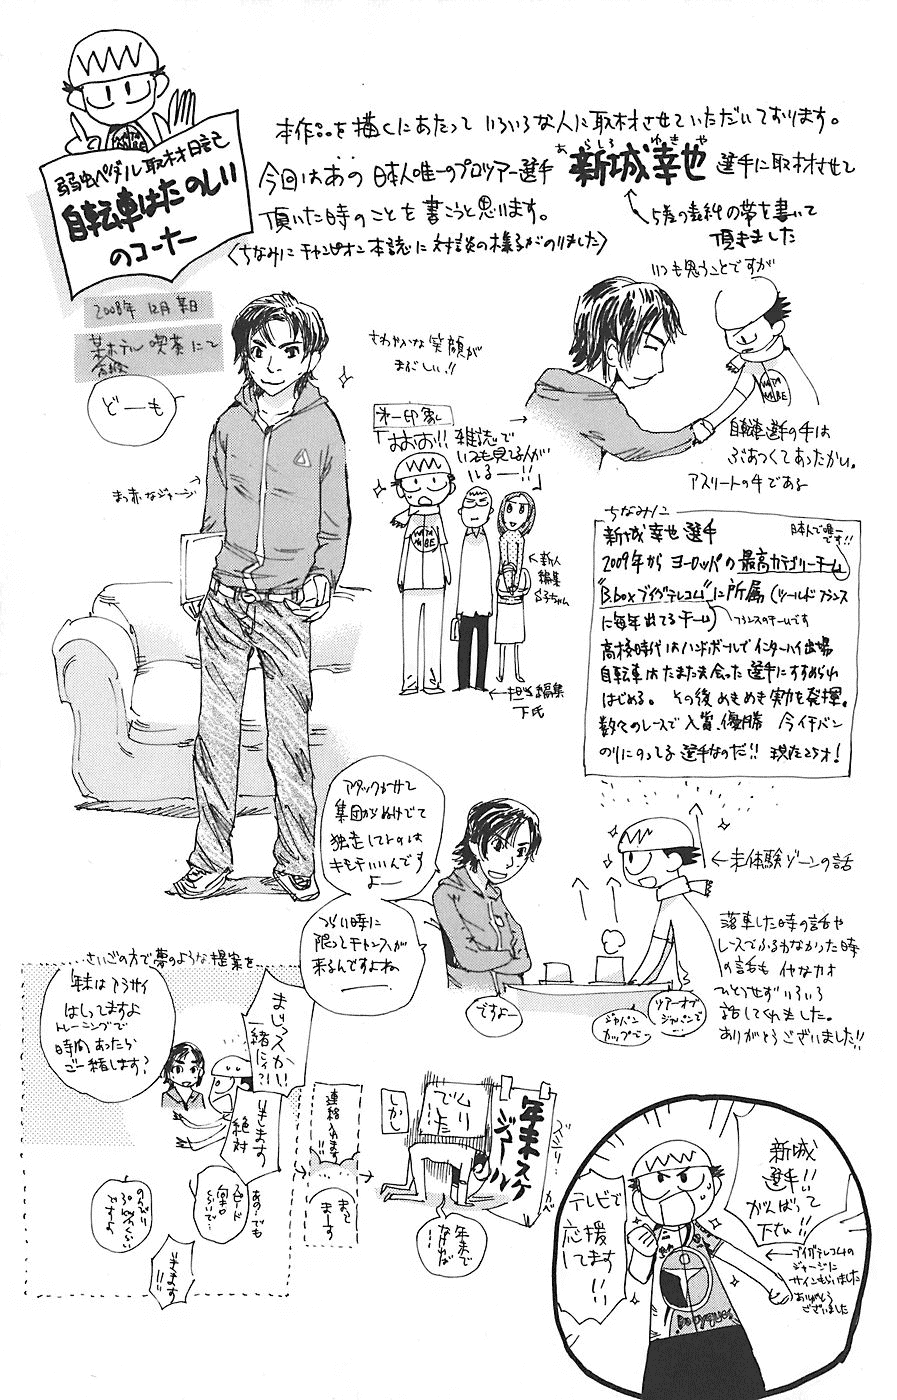 弱虫ペダル取材日記
自転車はたのしい
のコーナー
本作品を描くにあたって いろいろな人に取材させていただいております。
今回はあの 日本人唯一のプロツアー選手 新城幸也 選手に取材させて
あらしろ ゆきや
頂いた時のことを書こうと思います。
〈ちなみに チャンピオン本誌に対談の様子がのりました〉
5巻の表紙の帯を書いて
頂きました
2008年 12月 某日
某ホテル 喫茶にて
どーも
さわやかな笑顔が
まぶしい!!
まっ赤なジャージ
第一印象
「おおお!! 雑誌で
いつも見てる人が
いるーー!!」
新人
編集
担当編集
下氏
いつも思うことですが
自転車選手の手は
ぶあつくてあったかい。
アスリートの手である
ちなみに
新城 幸也 選手
日本人で唯一
です!!
2009年から ヨーロッパの最高カテゴリーチーム
"Bboxブイグテレコム"に所属(ツールドフランス
に毎年出てるチーム)
フランスのチームです
高校時代はハンドボールでインターハイ出場
自転車はたまたま会った選手にすすめられ
はじめる。 その後めきめき実力を発揮。
数々のレースで入賞、優勝 今イチバン
のりにのってる選手なのだ!! 現在25才!
アタックかけて
集団からぬけでて
独走してトのは
キモチいいんです
よー
つらい時に
限ってチャンスが
来るんですよね
ですよー
ジャパン
カップでー
ツアーオブ
ジャパンでー
未体験ゾーンの話
落車した時の話や
レースでふるわなかった時
の話も イヤなカオ
ひとつせず いろいろ
話してくれました。
ありがとうございました!!
さいごの方で夢のような提案を
年末はアラサイ
はしってますよ
トレーニングで
時間あったら
ご一緒します?
まじっスかい!
一緒にィ?!
いきます
絶対
あ、でも
スピード
のんびり
30kmくらい
ですよ
いきます
!!
連絡入れます
!!
まって
まーす
しかし
ムリ
でした
年末スケ
ジュール
年末で
なければ
新城
選手!!
がんばって
下さい!!
テレビで
応援
してます
!!
ブイグテレコムの
ジャージに
サインもらいました
ありがとう
ございました